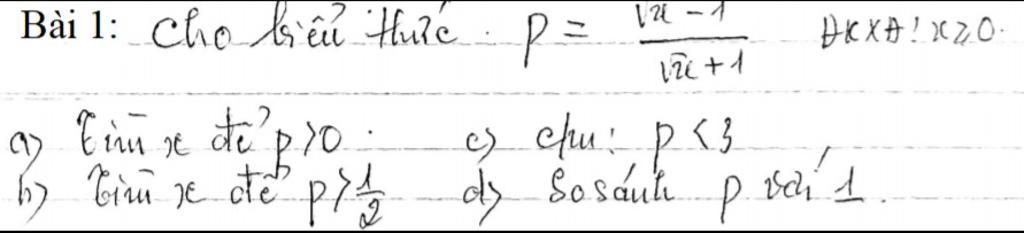 Bài 1: Cho biểu thức. P = (√x - 1)/(√x + 1) ĐKXĐ: x ≥ 0.
a) Tìm x để P > 0. c) chu: P < 3
b) Tìm x để P > 1/2 d) So sánh P với 1.